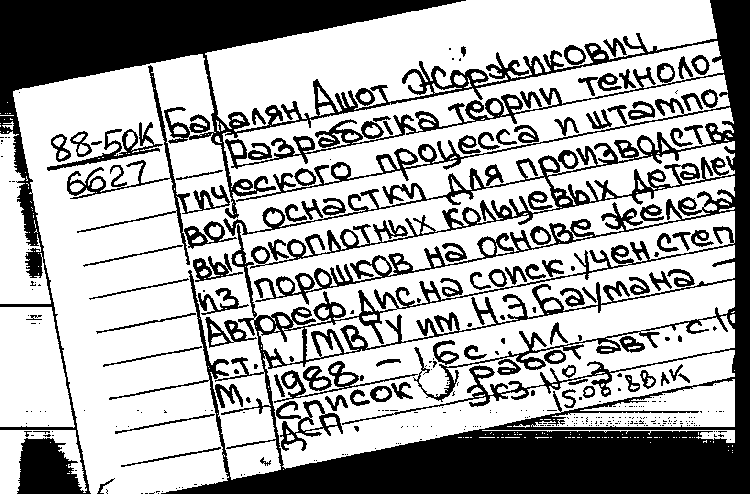 88-50К
6627
Бадалян, Ашот Жоржикович.
Разработка теории техноло-
гического процесса и штампо-
вой оснастки для производства
высокоплотных кольцевых деталей
из порошков на основе железа
Автореф. дис. на соиск. учен. степ
к.т.н. /МВТУ им. Н.Э. Баумана. –
М., 1988. – 16с.: ил.
Список работ авт.: с.
Экз. № 3.
ДСП.
15.08.88